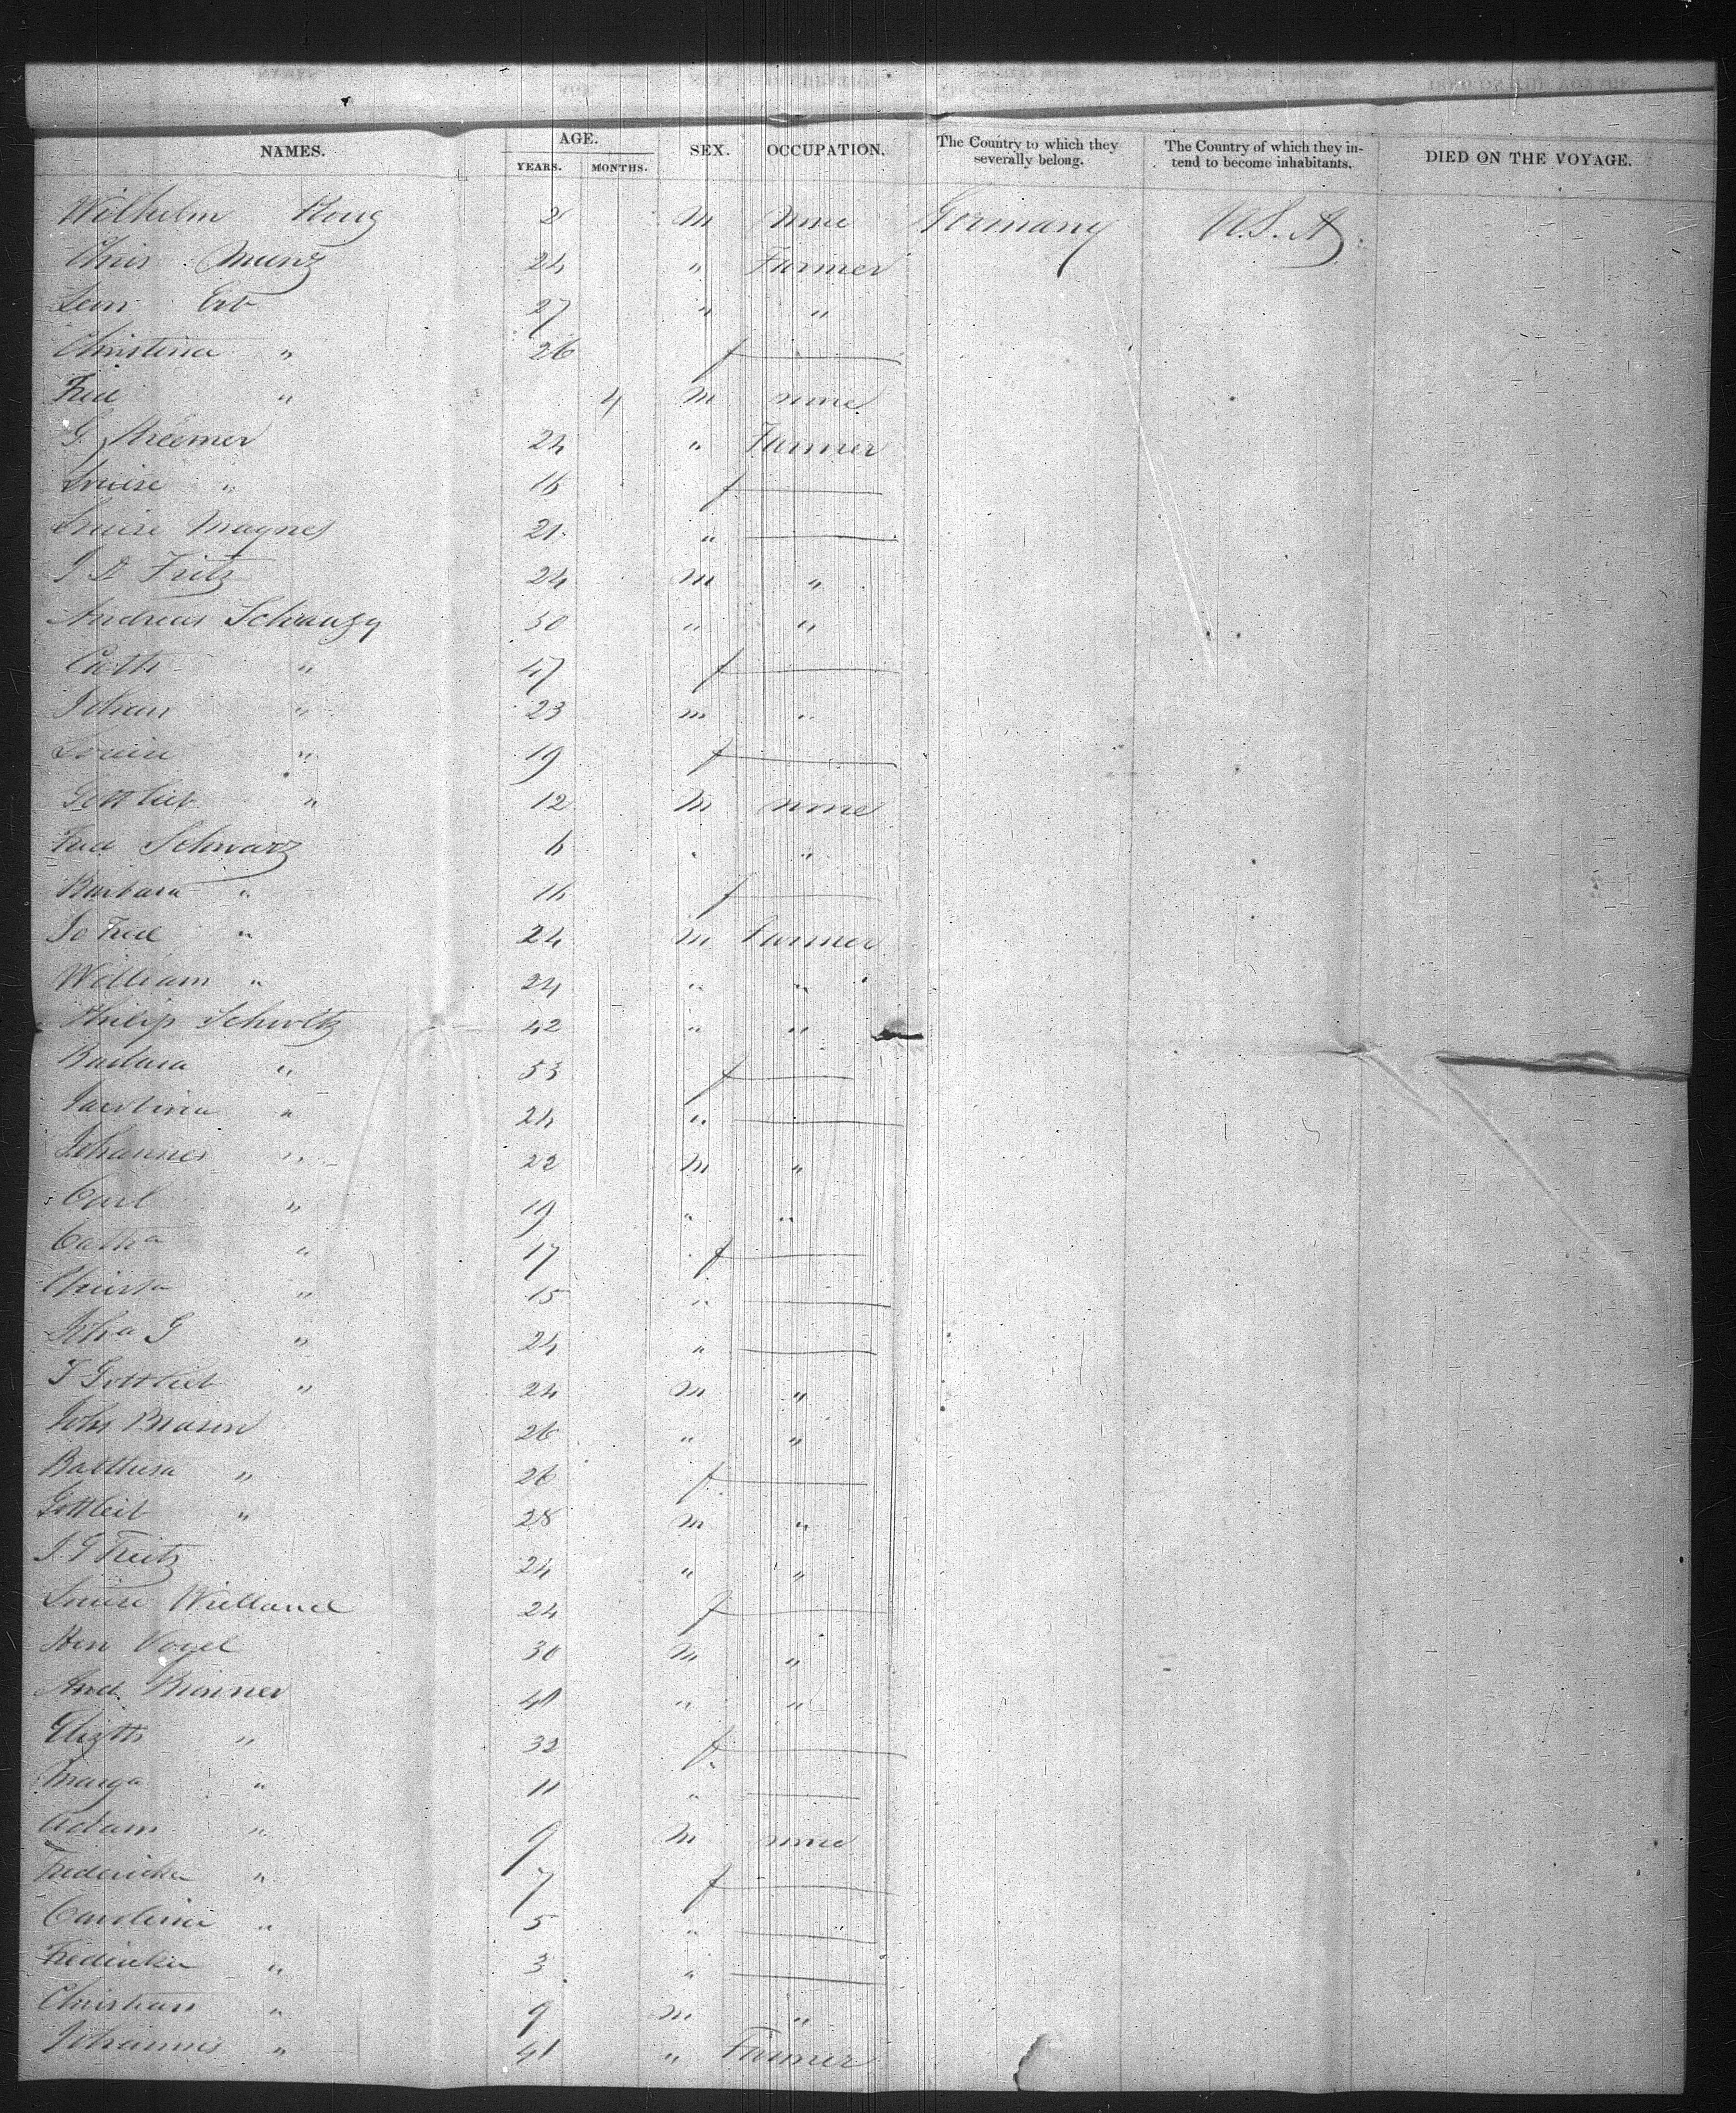 NAMES. AGE. YEARS. MONTHS. SEX. OCCUPATION. The Country to which they severally belong. The Country of which they intend to become inhabitants. DIED ON THE VOYAGE.
Wilhelm 2 M None Germany U.S.A
Chris Munz 24 " Farmer
Erb 27 " "
Christina " 26 f
Fred " 4 M none
G. 24 " Farmer
Louise " 16 f
Louise Maynes 21 "
J D Fritz 24 M "
Andreas 50 " "
Cath " 47 f
Johan " 23 m "
Louise " 19 f
Gottlieb " 12 M none
Fred Schwarz 6 " "
Barbara " 16 f
Jo Fred " 24 M Farmer
William " 24 " "
Philip Schultz 42 " "
Barbara " 53 f
Jacobina " 24 "
Johannes " 22 M "
Carl " 19 " "
Catha " 17 f
Christa " 15 "
Joha G " 24 "
F Gottlieb " 24 M "
John 26 " "
" 26 f
Gottleib " 28 M "
J. G Fritz 24 " "
Louise Wielland 24 f
Hen Vogel 30 M "
And. Bronner 41 " "
Elizth " 32 f
Marga " 11 "
Adam " 9 M none
Fredericka " 7 f
Carolina " 5 "
Fredericka " 3 "
Christian " 9 M "
Johannes " 41 " Farmer